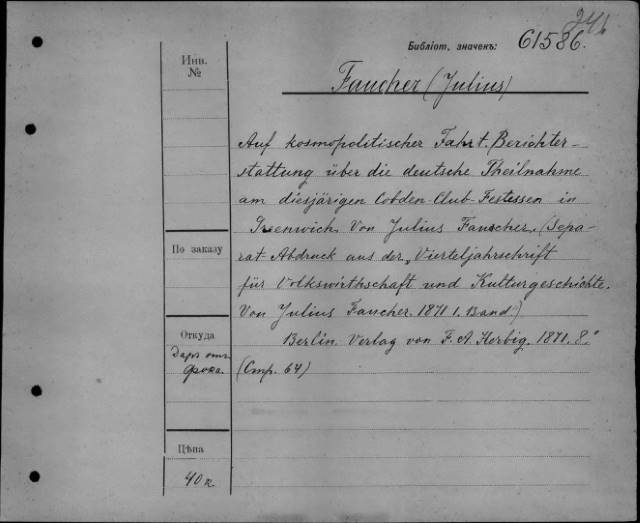 241
Библіот. значекъ: 61586.
Инв.
№
Faucher (Julius)
Auf kosmopolitischer Fahrt. Berichter-
stattung über die deutsche Theilnahme
am diesjärigen Cobden-Club-Festessen in
Greenwich. Von Julius Fauscher. (Sepa-
rat-Abdruck aus der „Vierteljahrschrift
für Volkswirthschaft und Kulturgeschichte.
Von Julius Faucher. 1871. 1. Band.)
Berlin. Verlag von F. A. Herbig. 1871. 8.°
(Стр. 64)
По заказу
Откуда
Даръ отъ
Цѣна
40 к.